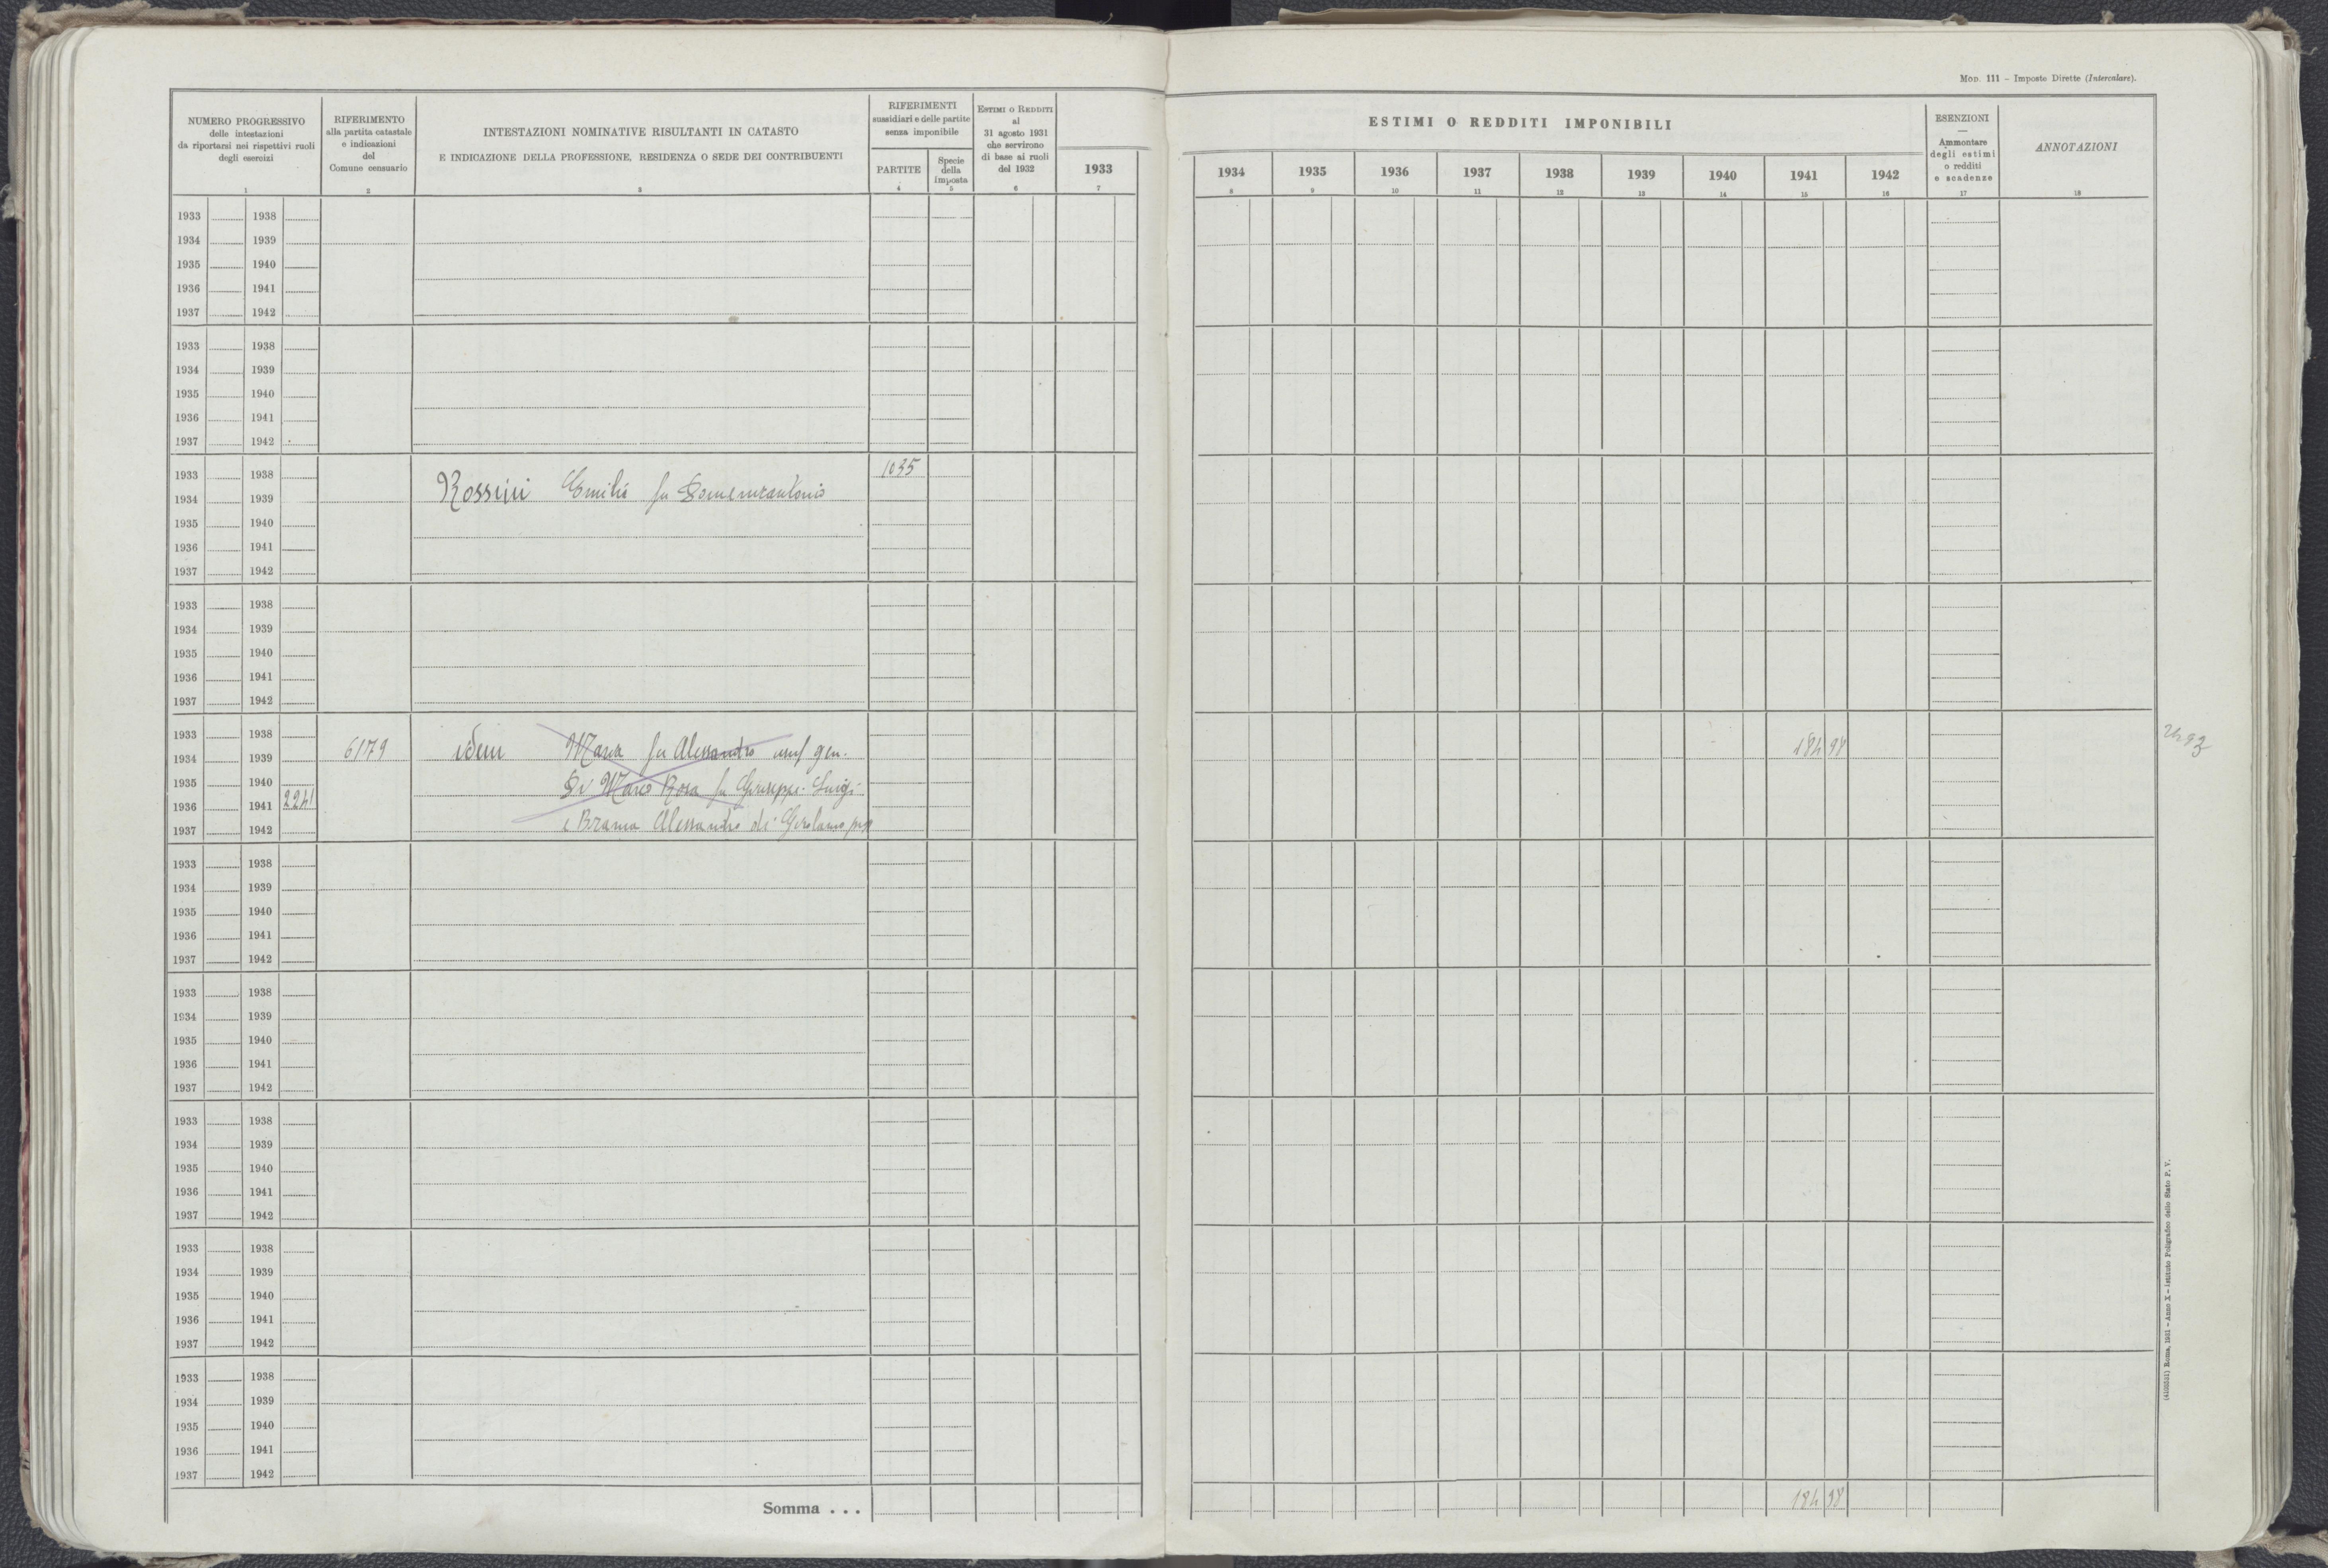 Mod. 111 - Imposte Dirette (Intercalare).
NUMERO PROGRESSIVO
delle intestazioni
da riportarsi nei rispettivi ruoli
degli esercizi
1
RIFERIMENTO
alla partita catastale
e indicazioni
del
Comune censuario
2
INTESTAZIONI NOMINATIVE RISULTANTI IN CATASTO
E INDICAZIONE DELLA PROFESSIONE, RESIDENZA O SEDE DEI CONTRIBUENTI
3
RIFERIMENTI
sussidiari e delle partite
senza imponibile
PARTITE
4
Specie
della
imposta
5
Estimi o Redditi
al
31 agosto 1931
che servirono
di base ai ruoli
del 1932
6
1933
7
ESTIMI O REDDITI IMPONIBILI
1934 1935 1936 1937 1938 1939 1940 1941 1942
8 9 10 11 12 13 14 15 16
ESENZIONI
—
Ammontare
degli estimi
o redditi
e scadenze
17
ANNOTAZIONI
18
1933 1938
1934 1939
1935 1940
1936 1941
1937 1942
1933 1938
1934 1939
1935 1940
1936 1941
1937 1942
1933 1938 1035
1934 1939 Rossini Emilio fu Domenicantonio
1935 1940
1936 1941
1937 1942
1933 1938
1934 1939
1935 1940
1936 1941
1937 1942
1933 1938
1934 1939 6179 idem Maria fu Alessandro usuf gen. 184 98
1935 1940 Di Marco Rosa fu Giuseppe Luigi
1936 1941 2241
1937 1942 e Brama Alessandro di Girolamo prop
1933 1938
1934 1939
1935 1940
1936 1941
1937 1942
1933 1938
1934 1939
1935 1940
1936 1941
1937 1942
1933 1938
1934 1939
1935 1940
1936 1941
1937 1942
1933 1938
1934 1939
1935 1940
1936 1941
1937 1942
1933 1938
1934 1939
1935 1940
1936 1941
1937 1942
Somma . . . 184 98
(4102531) Roma, 1931 - Anno X - Istituto Poligrafico dello Stato P. V.